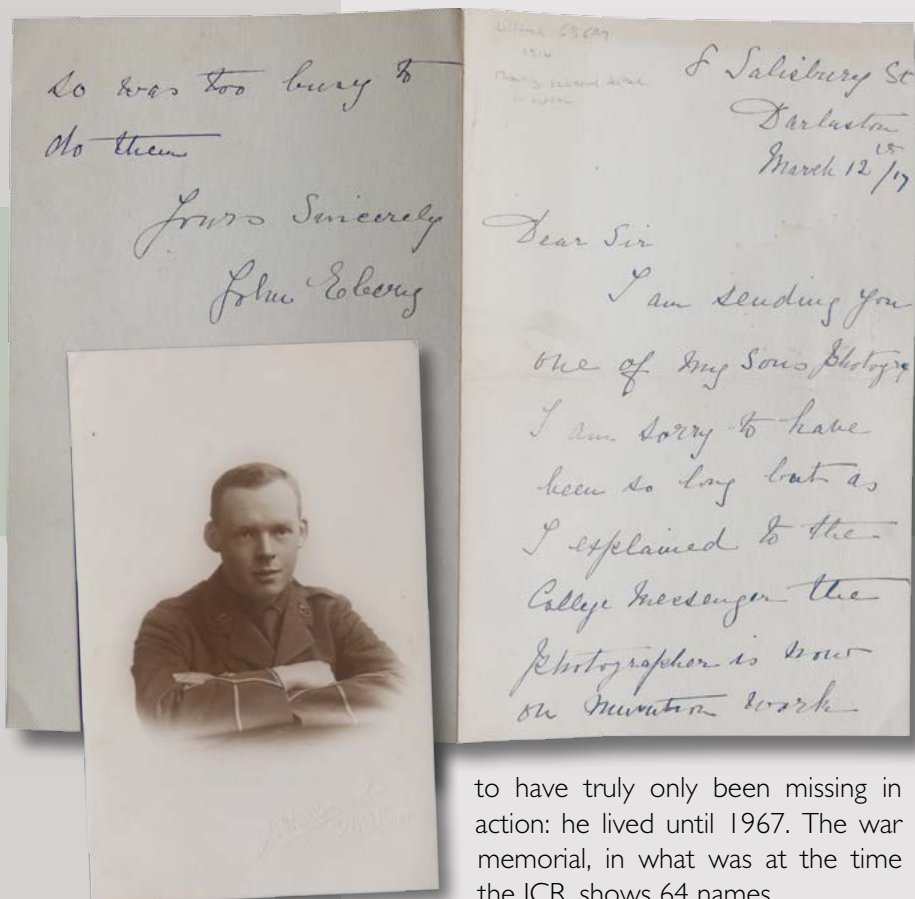 so was too busy to
do them
Yours Sincerely
John Ebery
1914
8 Salisbury St
Darlaston
March 12th/17
Dear Sir
I am sending you
one of my Sons Photogr
I am sorry to have
been so long but as
I explained to the
College Messenger the
Photographer is now
on Munition work
to have truly only been missing in
action: he lived until 1967. The war
memorial, in what was at the time
the JCR, shows 64 names.